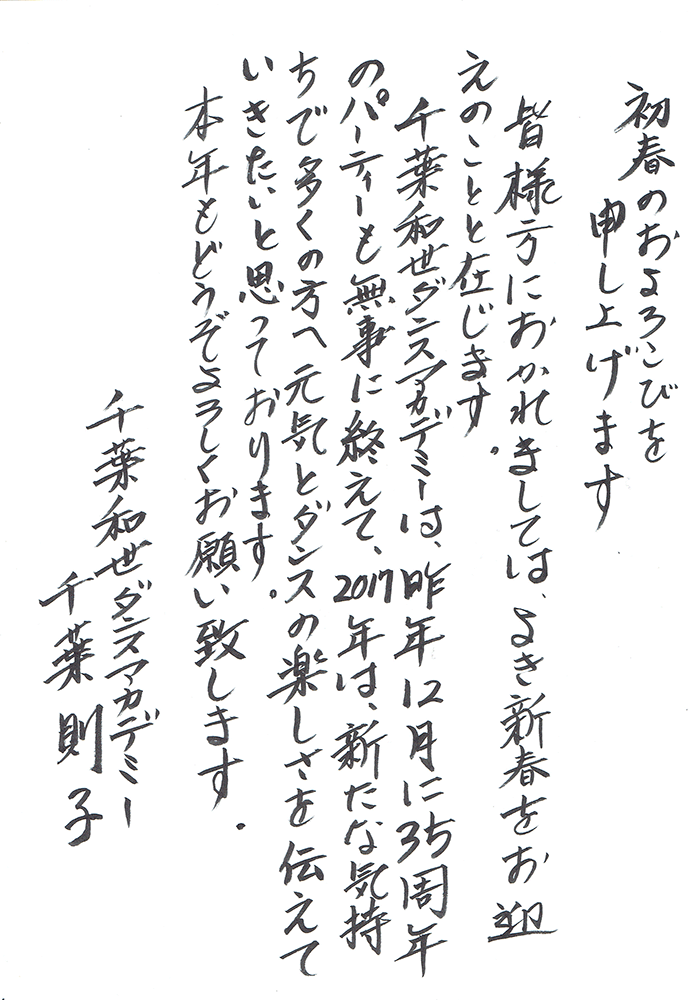 初春のおよろこびを
申し上げます
皆様方におかれましては、よき新春をお迎
えのことと在じます。
千葉和世ダンスアカデミーは、昨年12月に35周年
のパーティーも無事に終えて、2017年は、新たな気持
ちで多くの方へ元気とダンスの楽しさを伝えて
いきたいと思っております。
本年もどうぞよろしくお願い致します.
千葉和世ダンスアカデミー
千葉則子